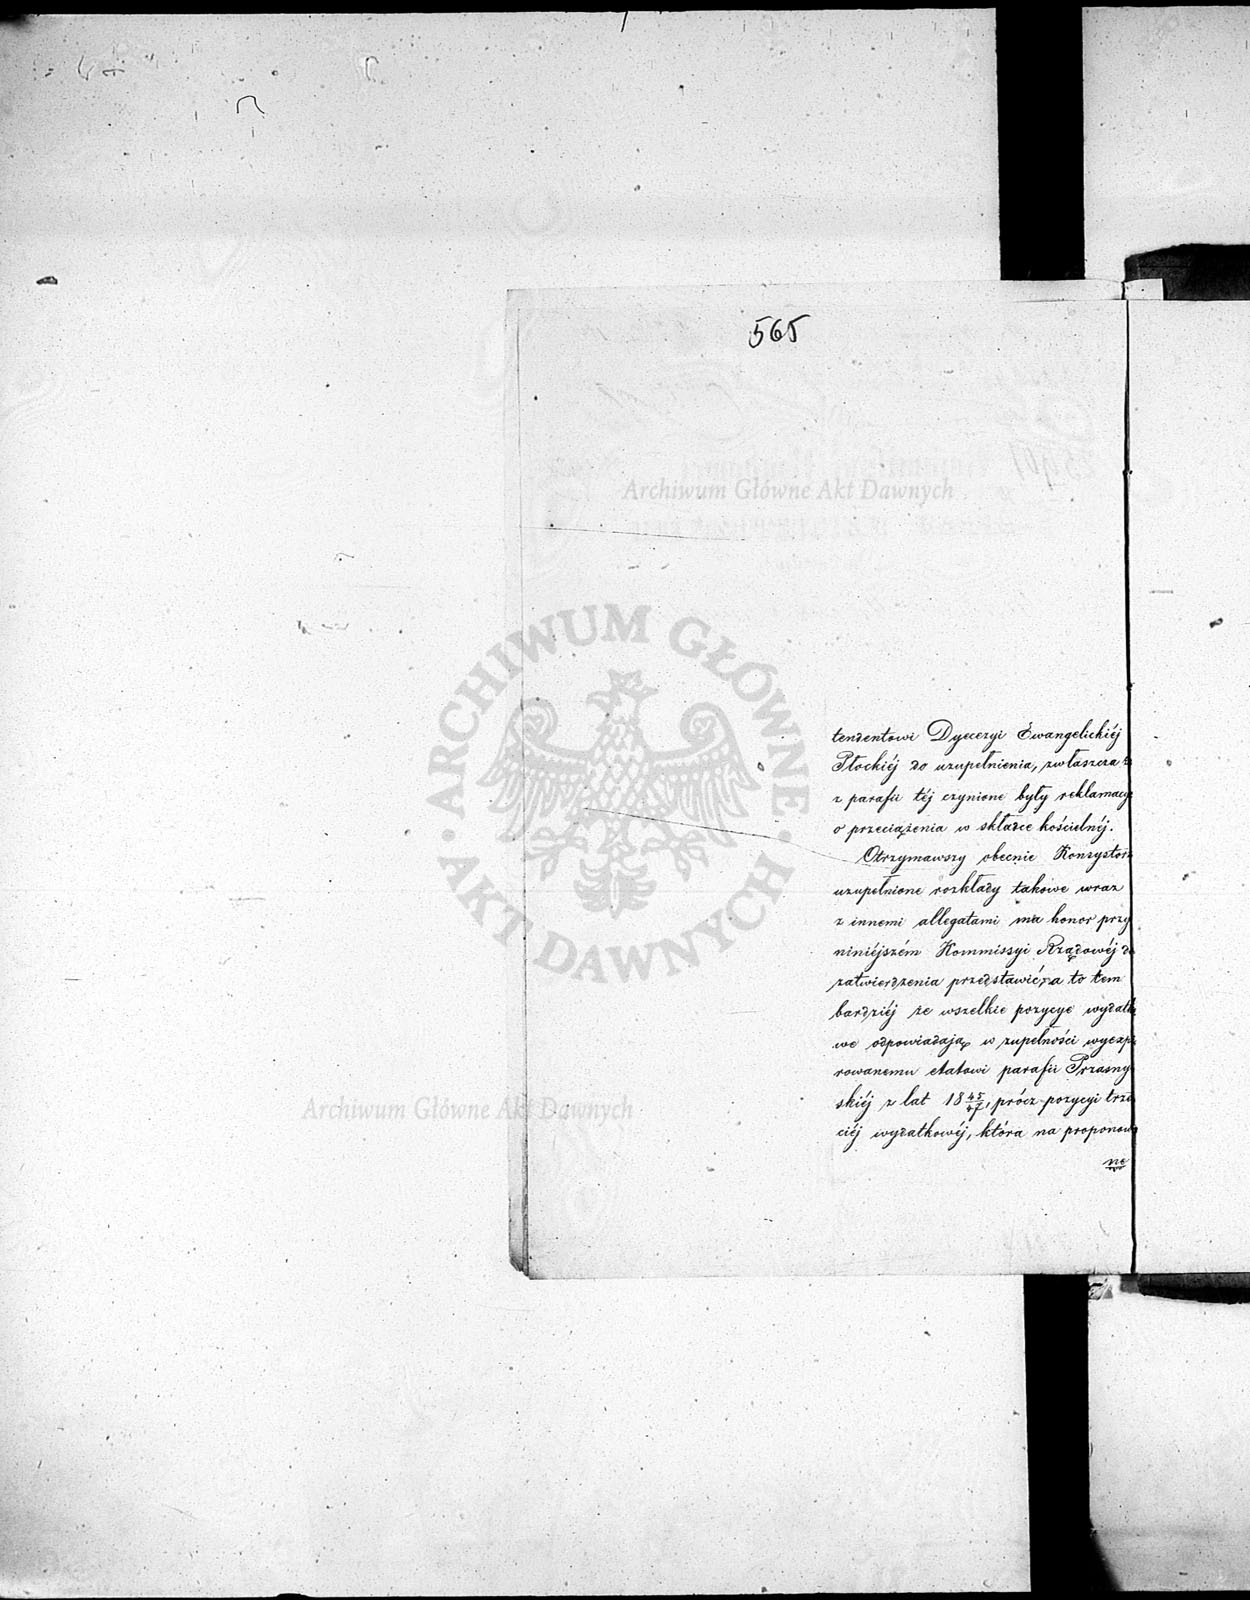 565
Archiwum Główne Akt Dawnych
ARCHIWUM GŁÓWNE
· AKT DAWNYCH ·
tendentowi Dyecezyi Ewangelickiéj
Płockiéj do uzupełnienia, zwłaszcza
z parafii téj czynione były reklamacye
o przeciążenia w składce kościelnéj.
Otrzymawszy obecnie Konsystorz
uzupełnione rozkłady takowe wraz
z innemi allegatami ma honor przy
niniéjszém Kommissyi Rządowéj do
zatwierdzenia przedstawić, a to tem
bardziéj że wszelkie pozycye wydatko
we odpowiadają w zupełności wyexpi
rowanemu etatowi parafii Przasny
skiéj z lat 18 45/47, prócz pozycyi trze
ciéj wydatkowéj, która na proponowa
ne
Archiwum Główne Akt Dawnych